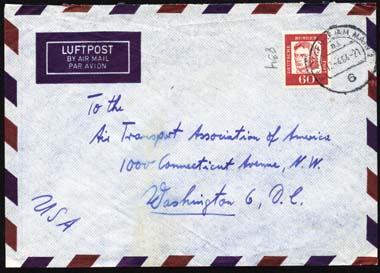 LUFTPOST
BY AIR MAIL
PAR AVION
DEUTSCHE BUNDESPOST
60
894
6
To the
Air Transport Association of America
1000 Connecticut Avenue, N.W.
Washington 6, D.C.
USA